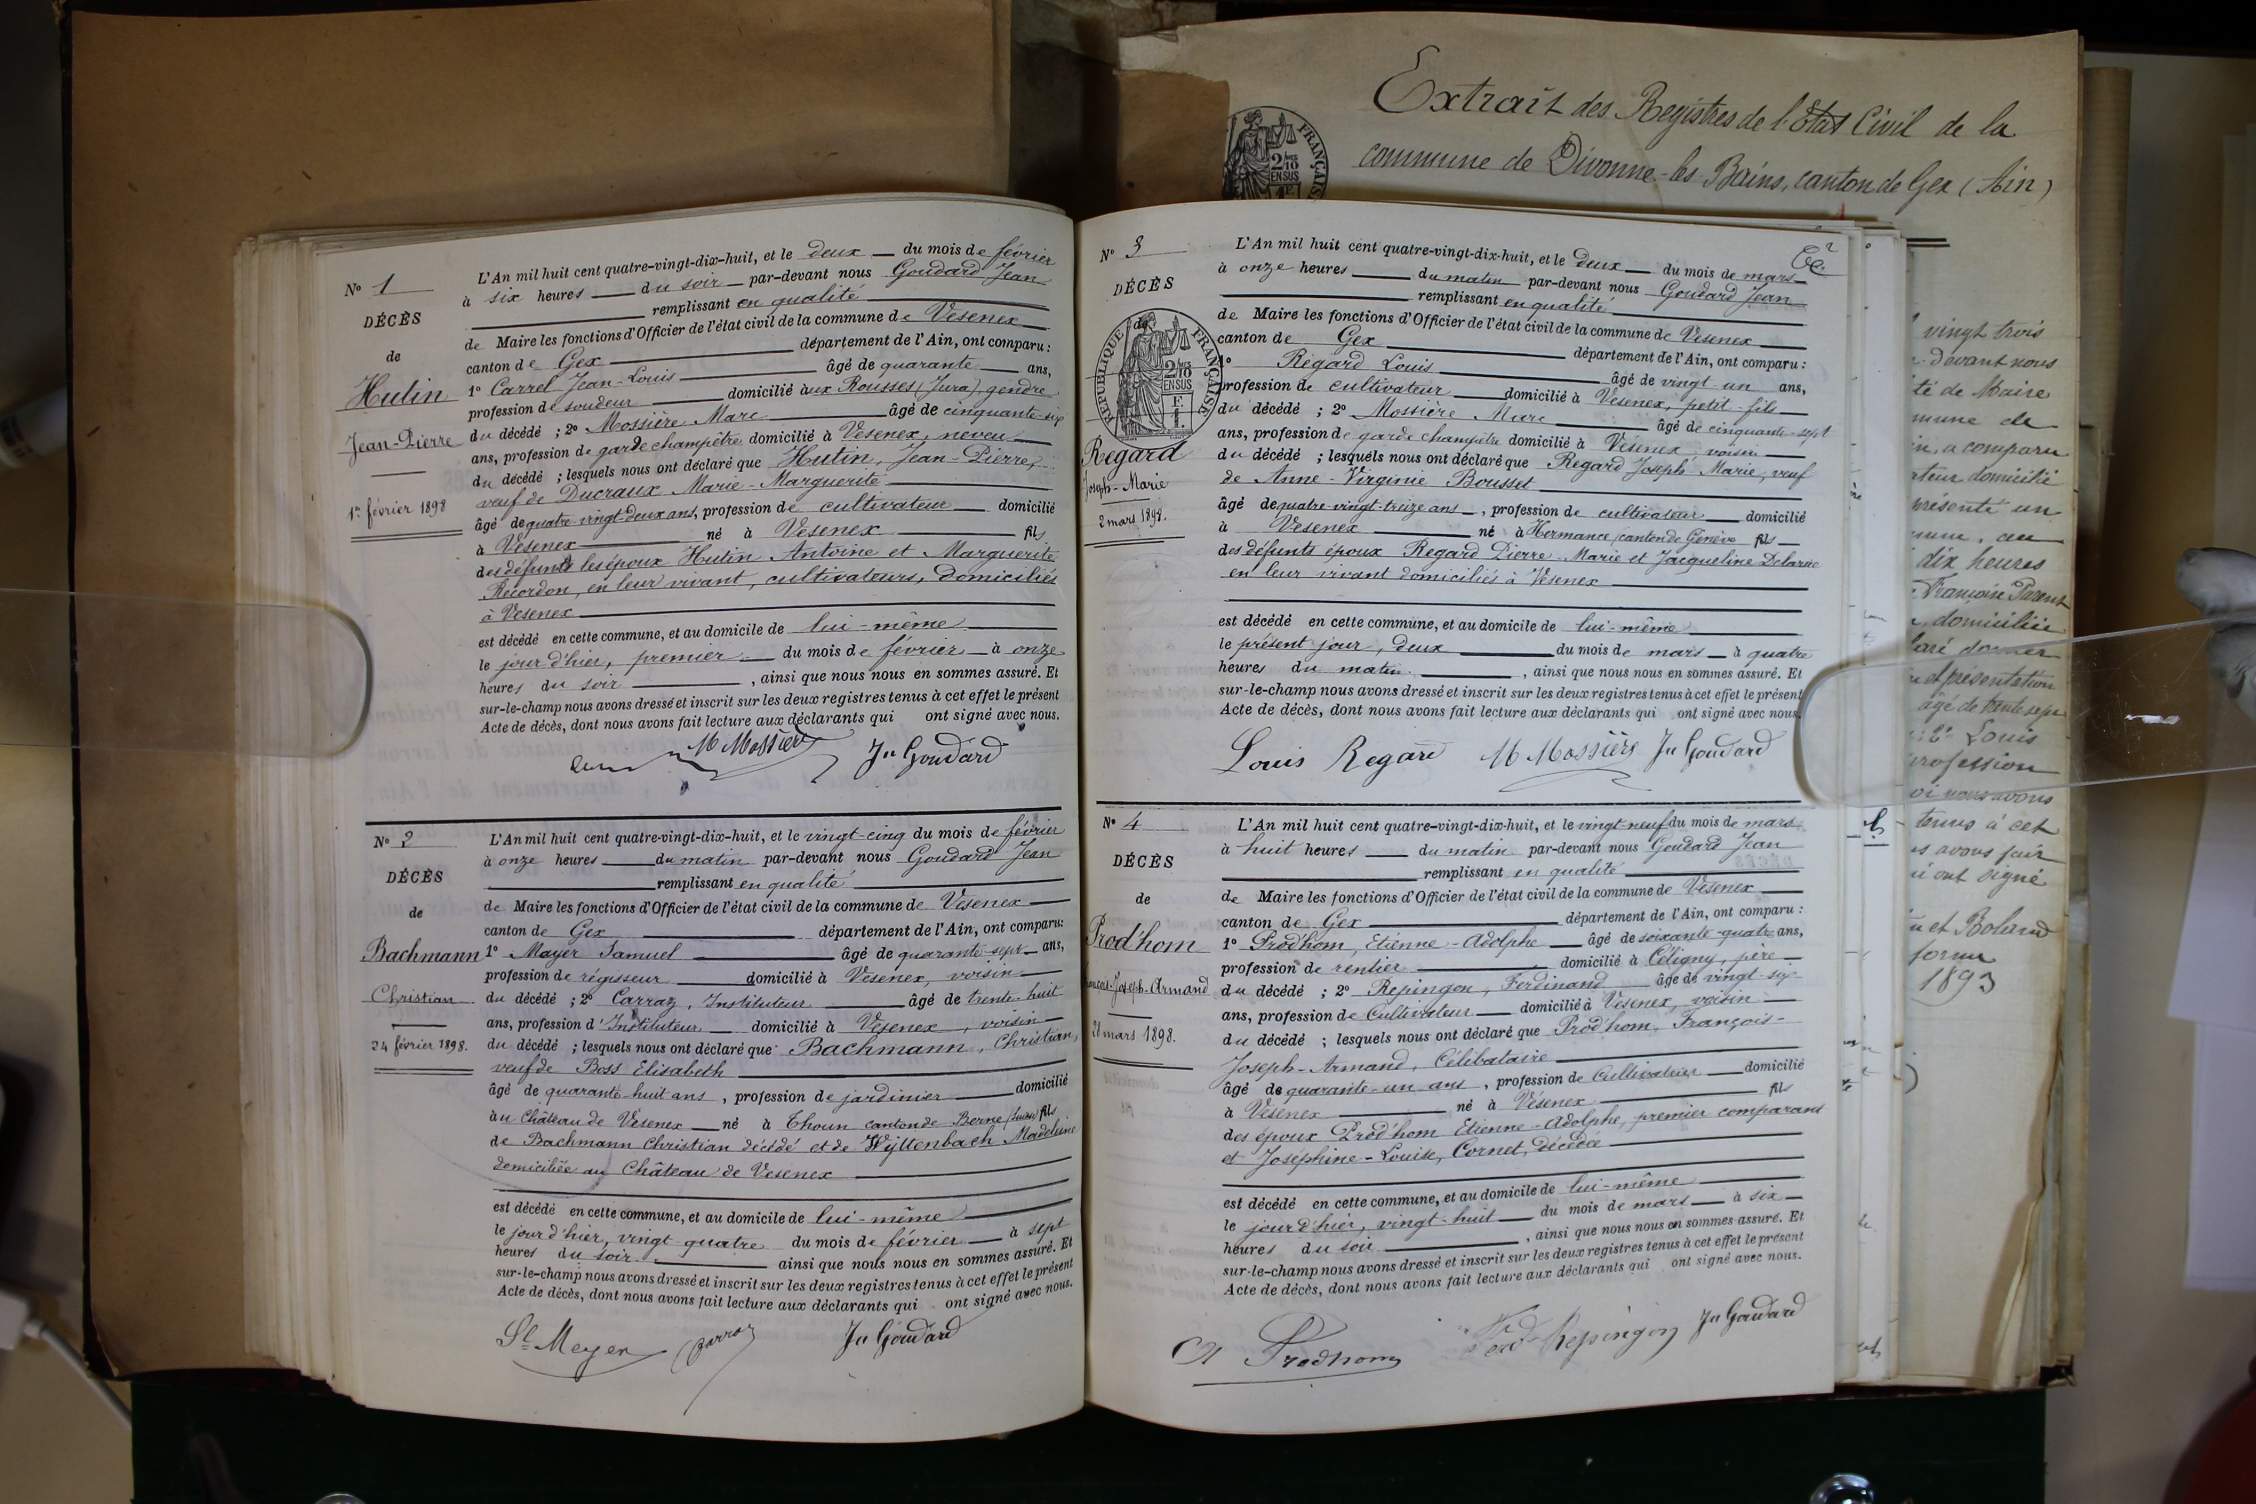 Nº 1
DÉCÈS
de
Hutin
Jean-Pierre
1er février 1898
L'An mil huit cent quatre-vingt-dix-huit, et le deux du mois de février
à six heures du soir par-devant nous Goudard Jean
remplissant en qualité
de Maire les fonctions d'Officier de l'état civil de la commune de Vesenex
canton de Gex département de l'Ain, ont comparu :
1º Carrel Jean-Louis âgé de quarante ans,
profession de soudeur domicilié aux Rousses (Jura), gendre
du décédé ; 2º Mossière Marc âgé de cinquante-six
ans, profession de garde champêtre domicilié à Vesenex, neveu
du décédé ; lesquels nous ont déclaré que Hutin, Jean-Pierre,
veuf de Ducraux Marie-Marguerite
âgé de quatre-vingt-deux ans, profession de cultivateur domicilié
à Vesenex né à Vesenex fils
des défunts les époux Hutin Antoine et Marguerite
Recordon, en leur vivant, cultivateurs, domiciliés
à Vesenex
est décédé en cette commune, et au domicile de lui-même
le jour d'hier, premier du mois de février à onze
heures du soir, ainsi que nous nous en sommes assuré. Et
sur-le-champ nous avons dressé et inscrit sur les deux registres tenus à cet effet le présent
Acte de décès, dont nous avons fait lecture aux déclarants qui ont signé avec nous.
M Mossière Jn Goudard
Nº 2
DÉCÈS
de
Bachmann
Christian
24 février 1898.
L'An mil huit cent quatre-vingt-dix-huit, et le vingt-cinq du mois de février
à onze heures du matin par-devant nous Goudard Jean
remplissant en qualité
de Maire les fonctions d'Officier de l'état civil de la commune de Vesenex
canton de Gex département de l'Ain, ont comparu :
1º Mayer Samuel âgé de quarante-sept ans,
profession de régisseur domicilié à Vesenex, voisin
du décédé ; 2º Carraz, Instituteur âgé de trente-huit
ans, profession d'Instituteur domicilié à Vesenex, voisin
du décédé ; lesquels nous ont déclaré que Bachmann, Christian,
veuf de Boss Elisabeth
âgé de quarante-huit ans, profession de jardinier domicilié
au Château de Vesenex né à Thoun canton de Berne (Suisse) fils
de Bachmann Christian décédé et de Wyttenbach Madeleine
domiciliée au Château de Vesenex
est décédé en cette commune, et au domicile de lui-même
le jour d'hier, vingt-quatre du mois de février à sept
heures du soir ainsi que nous nous en sommes assuré. Et
sur-le-champ nous avons dressé et inscrit sur les deux registres tenus à cet effet le présent
Acte de décès, dont nous avons fait lecture aux déclarants qui ont signé avec nous.
Sl Meyer Carraz Jn Goudard
Extrait des Registres de l'Etat Civil de la
commune de Divonne-les-Bains, canton de Gex (Ain)
Nº 3
DÉCÈS
de
RÉPUBLIQUE FRANÇAISE
2/10
EN SUS
Regard
Joseph-Marie
2 mars 1898.
L'An mil huit cent quatre-vingt-dix-huit, et le deux du mois de mars
à onze heures du matin par-devant nous Goudard Jean
remplissant en qualité
de Maire les fonctions d'Officier de l'état civil de la commune de Vesenex
canton de Gex département de l'Ain, ont comparu :
1º Regard Louis âgé de vingt-un ans,
profession de cultivateur domicilié à Vesenex, petit-fils
du décédé ; 2º Mossière Marc âgé de cinquante-sept
ans, profession de garde champêtre domicilié à Vesenex, voisin
du décédé ; lesquels nous ont déclaré que Regard Joseph Marie, veuf
de Anne-Virginie Bousset
âgé de quatre-vingt-treize ans, profession de cultivateur domicilié
à Vesenex né à Hermance (canton de Genève fils
des défunts époux Regard Pierre-Marie et Jacqueline Delarue
en leur vivant domiciliés à Vesenex
est décédé en cette commune, et au domicile de lui-même
le présent jour, deux du mois de mars à quatre
heures du matin, ainsi que nous nous en sommes assuré. Et
sur-le-champ nous avons dressé et inscrit sur les deux registres tenus à cet effet le présent
Acte de décès, dont nous avons fait lecture aux déclarants qui ont signé avec nous.
Louis Regard M Mossière Jn Goudard
Nº 4
DÉCÈS
de
Prod'hom
François-Joseph-Armand
28 mars 1898.
L'An mil huit cent quatre-vingt-dix-huit, et le vingt-neuf du mois de mars
à huit heures du matin par-devant nous Goudard Jean
remplissant en qualité
de Maire les fonctions d'Officier de l'état civil de la commune de Vesenex
canton de Gex département de l'Ain, ont comparu :
1º Prod'hom, Etienne-Adolphe âgé de soixante-quatre ans,
profession de rentier domicilié à Céligny, père
du décédé ; 2º Repingon, Ferdinand âgé de vingt-six
ans, profession de Cultivateur domicilié à Vesenex, voisin
du décédé ; lesquels nous ont déclaré que Prod'hom, François-
Joseph-Armand, Célibataire
âgé de quarante-un ans, profession de Cultivateur domicilié
à Vesenex né à Vesenex fils
des époux Prod'hom Etienne-Adolphe, premier comparant
et Joséphine-Louise, Cornet, décédée
est décédé en cette commune, et au domicile de lui-même
le jour d'hier, vingt-huit du mois de mars à six
heures du soir, ainsi que nous nous en sommes assuré. Et
sur-le-champ nous avons dressé et inscrit sur les deux registres tenus à cet effet le présent
Acte de décès, dont nous avons fait lecture aux déclarants qui ont signé avec nous.
Prodhom Ferd Repingon Jn Goudard
vingt trois
devant nous
té de Maire
mune de
a comparu
domicilié
présenté un
dix heures
Françoise Parent
domiciliée
présentation
âgé de trente sept
2º Louis
profession
nous avons
tenus à cet
avons fait
ont signé
et Roland
forme
1893